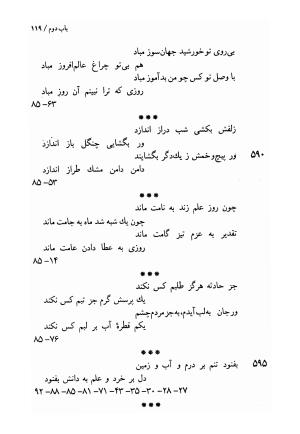 باب دوم / ۱۱۹
بی‌روی تو خورشید جهان‌سوز مباد
هم بی‌تو چراغ عالم‌افروز مباد
با وصل تو کس چو من بدآموز مباد
روزی که ترا نبینم آن روز مباد
۸۵–۶۳
***
زلفش بکشی شب دراز اندازد
ور بگشایی چنگل باز اندازد
۵۹۰ ور پیچ و خمش ز یك‌دگر بگشایند
دامن دامن مشك طراز اندازد
۸۵–۵۳
***
چون روز علم زند به نامت ماند
چون یك شبه شد ماه به جامت ماند
تقدیر به عزم تیز گامت ماند
روزی به عطا دادن عامت ماند
۸۵–۱۴
***
جز حادثه هرگز طلبم کس نکند
یك پرسش گرم جز تبم کس نکند
ور جان به لب آیدم، به جز مردم چشم
یکم قطرهٔ آب بر لبم کس نکند
۸۵–۷۶
***
۵۹۵ بفنود تنم بر درم و آب و زمین
دل بر خرد و علم به دانش بفنود
۲۷–۲۸–۳۰–۳۵–۴۳–۷۱–۸۱–۸۵–۸۸–۹۲
***